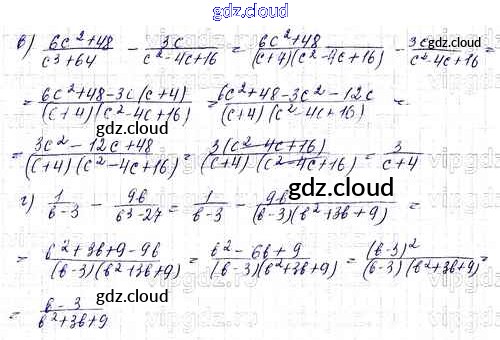 gdz.cloud
в) \frac{6c^2+48}{c^3+64} - \frac{3c}{c^2-4c+16} = \frac{6c^2+48}{(c+4)(c^2-4c+16)} - \frac{3c}{c^2-4c+16} =
= \frac{6c^2+48-3c(c+4)}{(c+4)(c^2-4c+16)} = \frac{6c^2+48-3c^2-12c}{(c+4)(c^2-4c+16)} =
= \frac{3c^2-12c+48}{(c+4)(c^2-4c+16)} = \frac{3(c^2-4c+16)}{(c+4)(c^2-4c+16)} = \frac{3}{c+4}
г) \frac{1}{в-3} - \frac{9в}{в^3-27} = \frac{1}{в-3} - \frac{9в}{(в-3)(в^2+3в+9)} =
= \frac{в^2+3в+9-9в}{(в-3)(в^2+3в+9)} = \frac{в^2-6в+9}{(в-3)(в^2+3в+9)} = \frac{(в-3)^2}{(в-3)(в^2+3в+9)} =
= \frac{в-3}{в^2+3в+9}